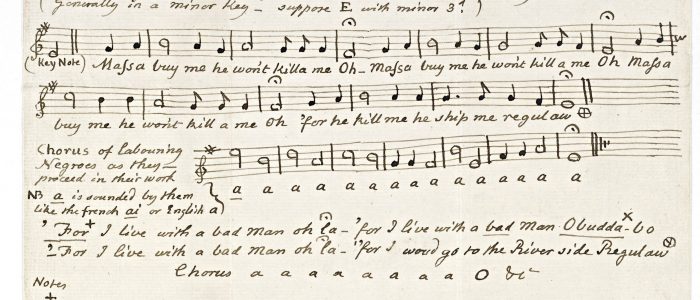 (Generally in a minor Key – suppose E with minor 3.d)
(Key Note) Massa buy me he won't killa me Oh – Massa buy me he won't kill a me Oh Massa
buy me he won't kill a me Oh 'for he kill me he ship me regulaw ⊕
Chorus of labouring
Negroes as they –
proceed in their work
a a a a a a a a a
NB a is sounded by them
like the french ai or English a)
'For + I live with a bad man oh la – 'for I live with a bad man Obudda-bo ×
'For I live with a bad man oh la – 'for I woud go to the River side Regulaw
Chorus a a a a a a a O &c
Notes
+